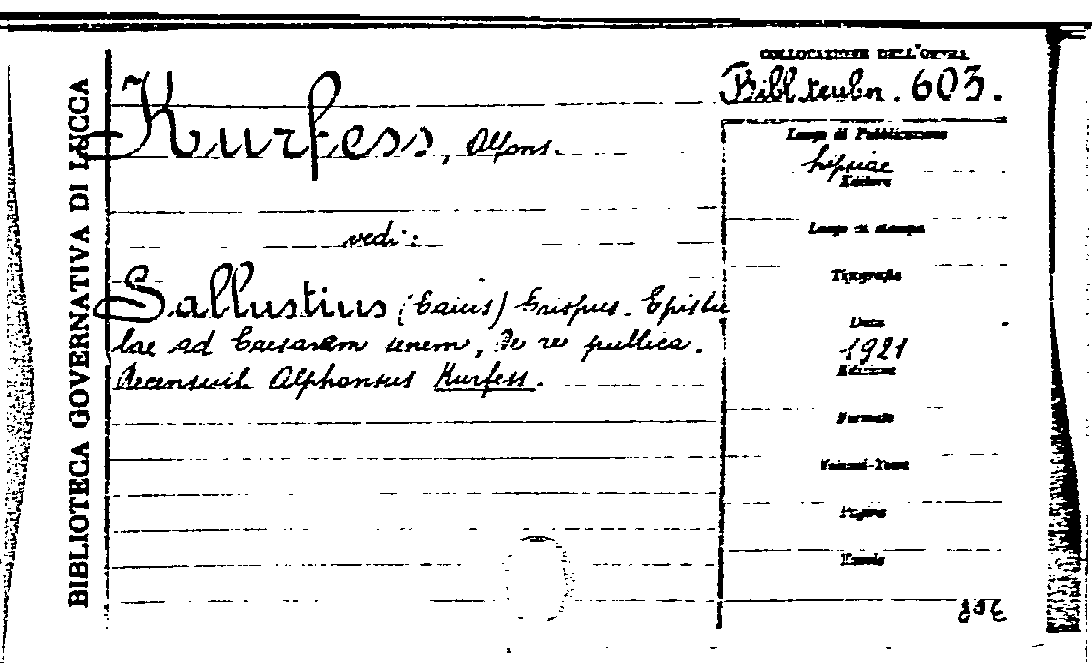 BIBLIOTECA GOVERNATIVA DI LUCCA
COLLOCAZIONE DELL'OPERA
Bibl. teubn. 603.
Kurfess, Alfons.
vedi:
Sallustius (Caius) Crispus. Epistu
lae ad Caesarem senem, De re publica.
Recensuit Alphonsus Kurfess.
Luogo di Pubblicazione
Lipsiae
Editore
Luogo di stampa
Tipografia
Data
1921
Edizione
Formato
Volumi-Tomi
Pagine